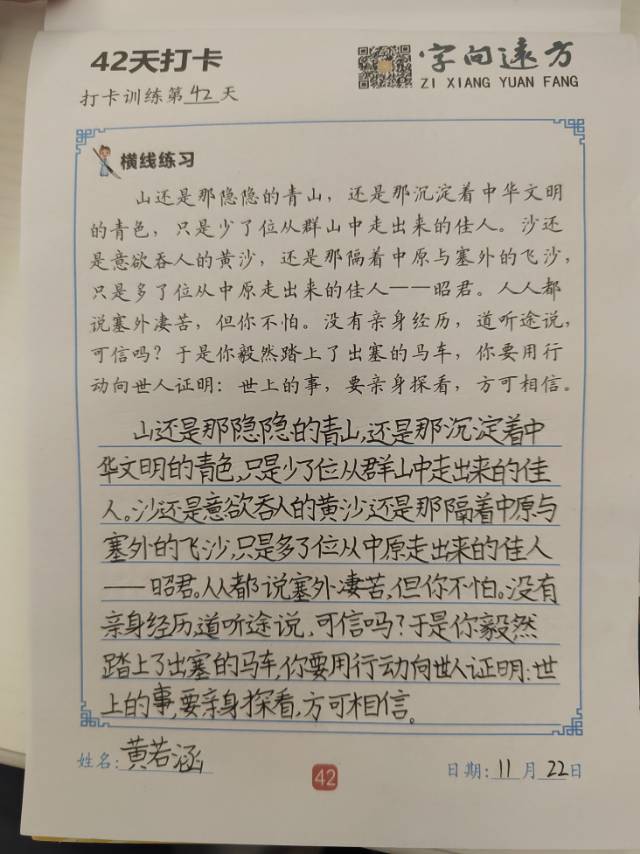 42天打卡
字向远方
ZI XIANG YUAN FANG
打卡训练第 42 天
横线练习
山还是那隐隐的青山，还是那沉淀着中华文明
的青色，只是少了位从群山中走出来的佳人。沙还
是意欲吞人的黄沙，还是那隔着中原与塞外的飞沙，
只是多了位从中原走出来的佳人——昭君。人人都
说塞外凄苦，但你不怕。没有亲身经历，道听途说，
可信吗？于是你毅然踏上了出塞的马车，你要用行
动向世人证明：世上的事，要亲身探看，方可相信。
山还是那隐隐的青山,还是那沉淀着中
华文明的青色,只是少了位从群山中走出来的佳
人。沙还是意欲吞人的黄沙,还是那隔着中原与
塞外的飞沙,只是多了位从中原走出来的佳人
——昭君。人人都说塞外凄苦,但你不怕。没有
亲身经历,道听途说,可信吗?于是你毅然
踏上了出塞的马车,你要用行动向世人证明:世
上的事,要亲身探看,方可相信。
姓名: 黄若涵
42
日期: 11 月 22 日